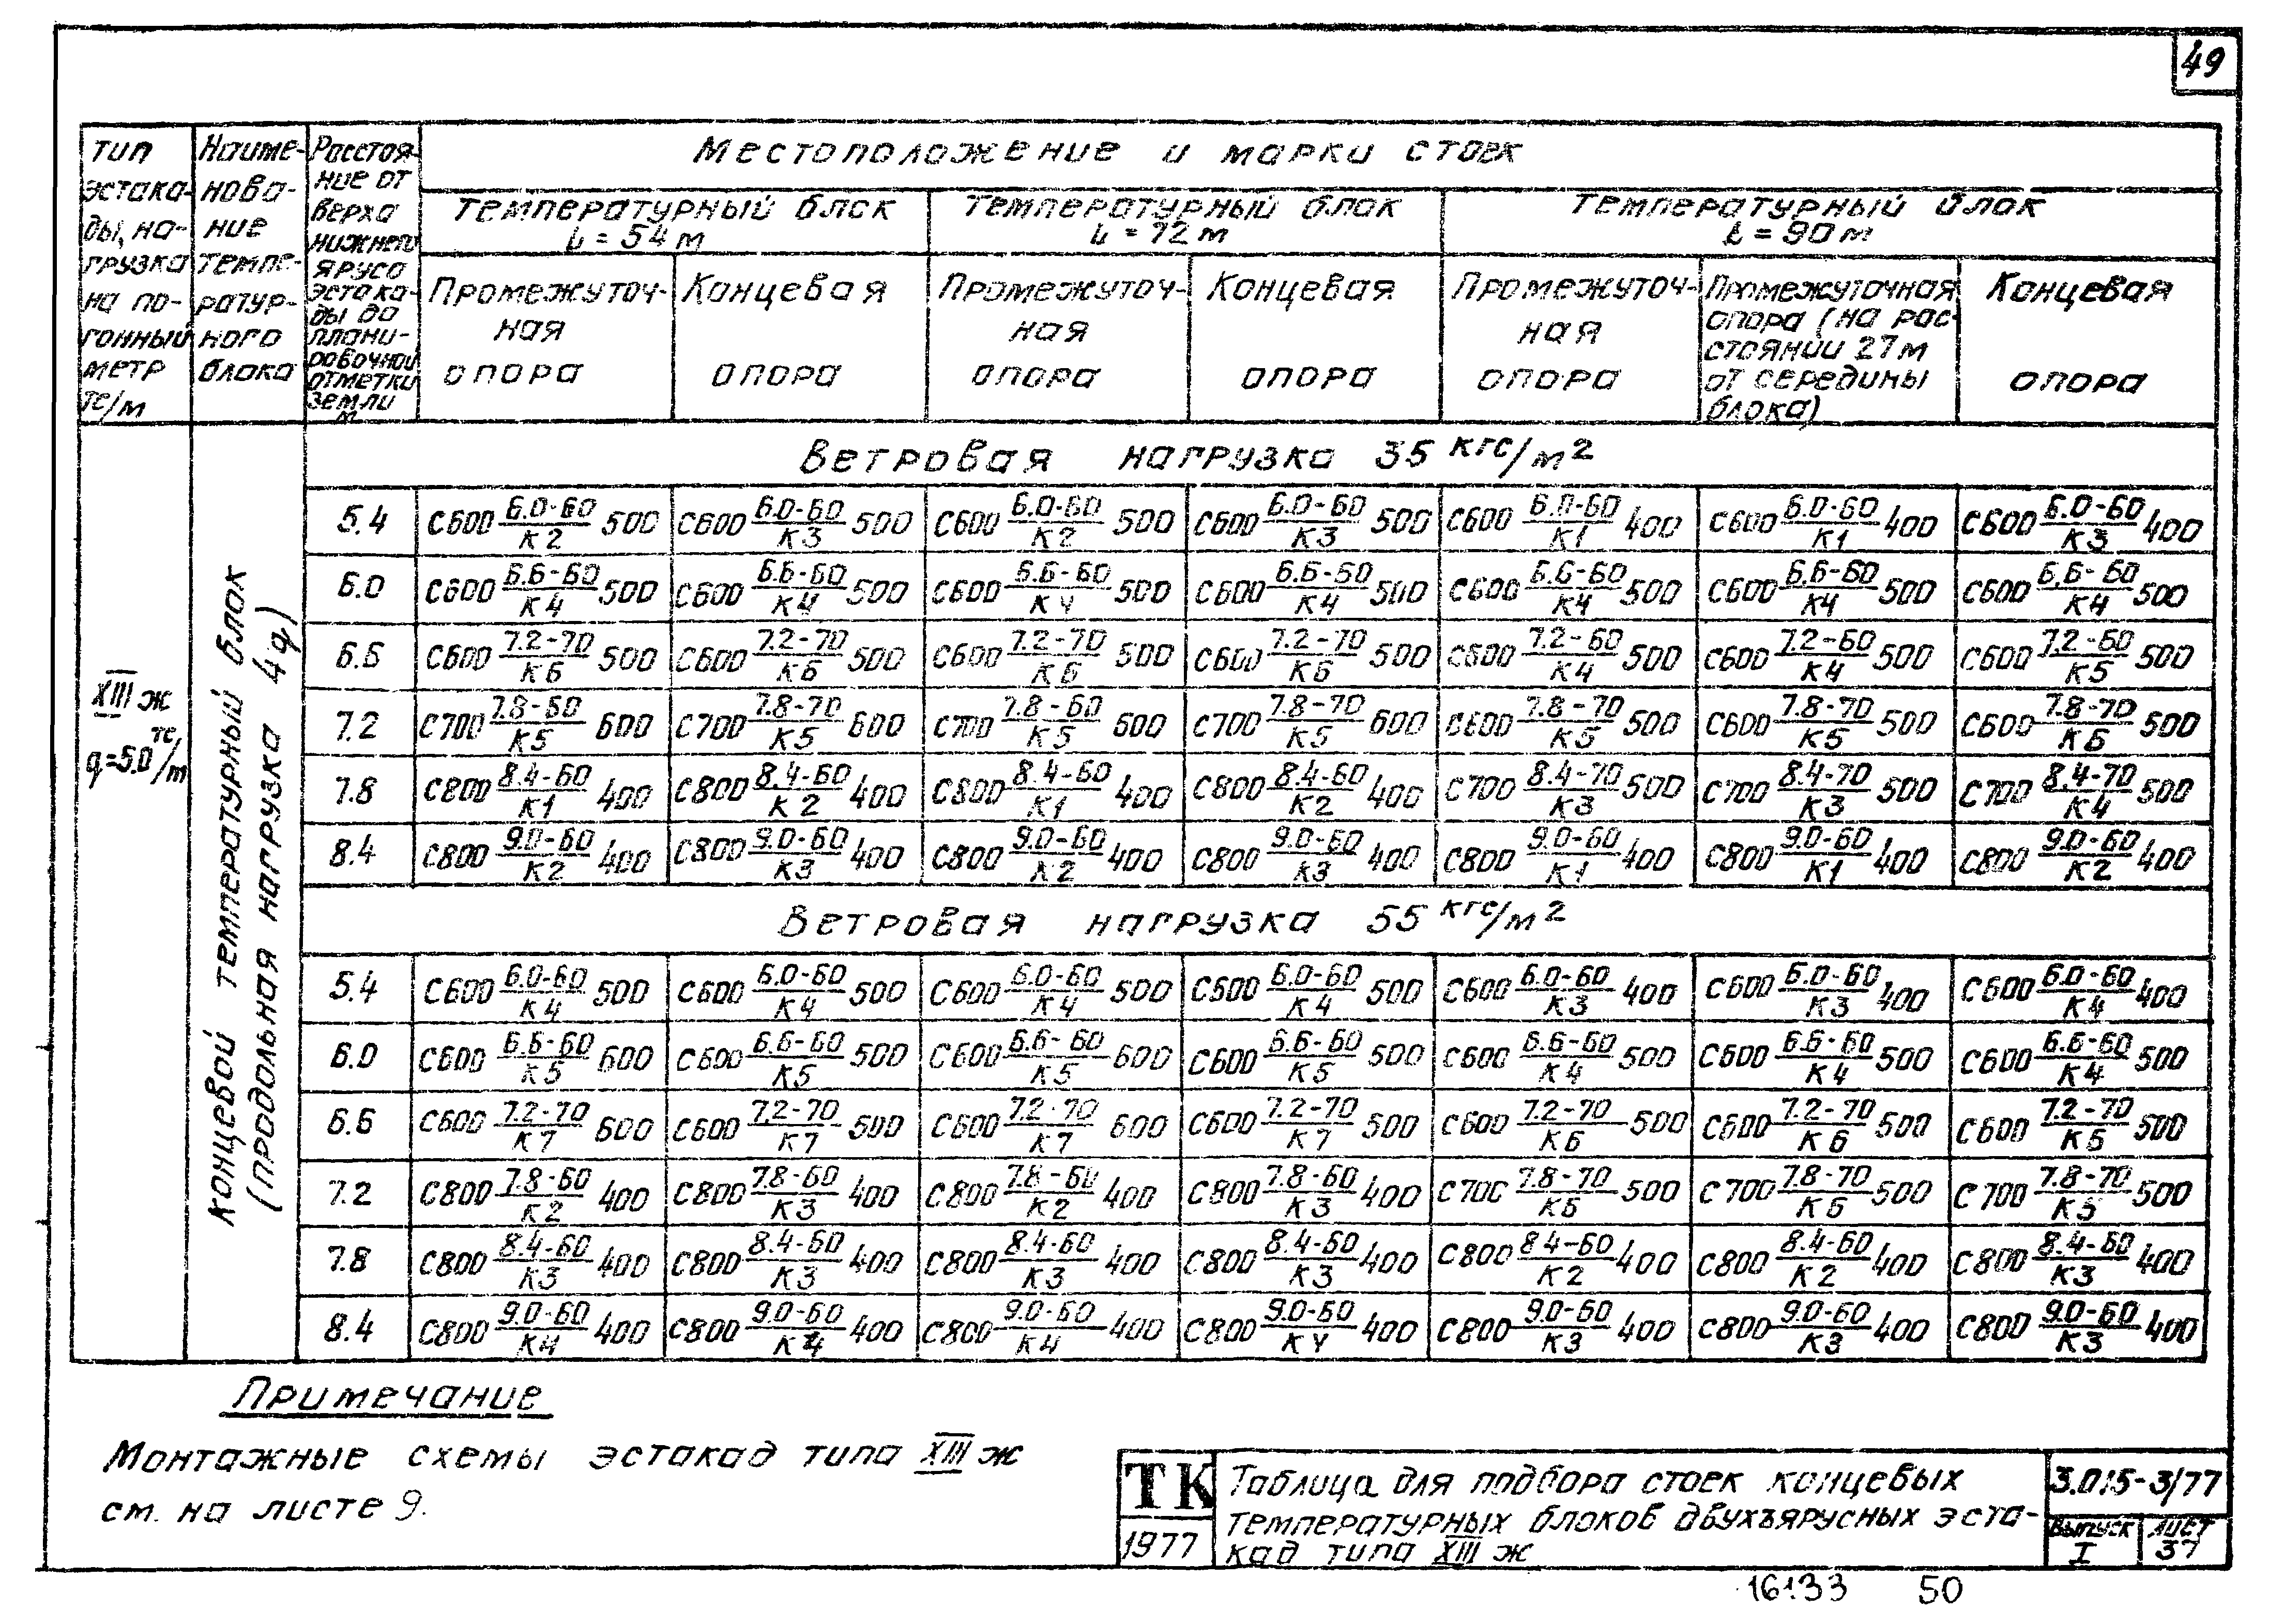 49
Тип эстакады, нагрузка на погонный метр тс/м
Наименование температурного блока
Расстояние от верха нижнего яруса эстакады до планировочной отметки земли м
Местоположение и марки стоек
Температурный блок L = 54 м
Температурный блок L = 72 м
Температурный блок L = 90 м
Промежуточная опора
Концевая опора
Промежуточная опора
Концевая опора
Промежуточная опора
Промежуточная опора (на расстоянии 27 м от середины блока)
Концевая опора
XIII ж q=5.0 тс/м
Концевой температурный блок (продольная нагрузка 4q)
Ветровая нагрузка 35 кгс/м²
5.4 С600 6.0-60/К2 500 С600 6.0-60/К3 500 С600 6.0-60/К2 500 С600 6.0-60/К3 500 С600 6.0-60/К1 400 С600 6.0-60/К1 400 С600 6.0-60/К3 400
6.0 С600 6.6-60/К4 500 С600 6.6-60/К4 500 С600 6.6-60/К4 500 С600 6.6-60/К4 500 С600 6.6-60/К4 500 С600 6.6-60/К4 500 С600 6.6-60/К4 500
6.6 С600 7.2-70/К6 500 С600 7.2-70/К6 500 С600 7.2-70/К6 500 С600 7.2-70/К6 500 С600 7.2-60/К4 500 С600 7.2-60/К4 500 С600 7.2-60/К5 500
7.2 С700 7.8-60/К5 600 С700 7.8-70/К5 600 С700 7.8-60/К5 600 С700 7.8-70/К5 600 С600 7.8-70/К5 500 С600 7.8-70/К5 500 С600 7.8-70/К6 500
7.8 С800 8.4-60/К1 400 С800 8.4-60/К2 400 С800 8.4-60/К1 400 С800 8.4-60/К2 400 С700 8.4-70/К3 500 С700 8.4-70/К3 500 С700 8.4-70/К4 500
8.4 С800 9.0-60/К2 400 С800 9.0-60/К3 400 С800 9.0-60/К2 400 С800 9.0-60/К3 400 С800 9.0-60/К1 400 С800 9.0-60/К1 400 С800 9.0-60/К2 400
Ветровая нагрузка 55 кгс/м²
5.4 С600 6.0-60/К4 500 С600 6.0-60/К4 500 С600 6.0-60/К4 500 С600 6.0-60/К4 500 С600 6.0-60/К3 400 С600 6.0-60/К3 400 С600 6.0-60/К4 400
6.0 С600 6.6-60/К5 600 С600 6.6-60/К5 500 С600 6.6-60/К5 600 С600 6.6-60/К5 500 С600 6.6-60/К4 500 С600 6.6-60/К4 500 С600 6.6-60/К4 500
6.6 С600 7.2-70/К7 600 С600 7.2-70/К7 500 С600 7.2-70/К7 600 С600 7.2-70/К7 500 С600 7.2-70/К6 500 С600 7.2-70/К6 500 С600 7.2-70/К5 500
7.2 С800 7.8-60/К2 400 С800 7.8-60/К3 400 С800 7.8-60/К2 400 С800 7.8-60/К3 400 С700 7.8-70/К5 500 С700 7.8-70/К5 500 С700 7.8-70/К5 500
7.8 С800 8.4-60/К3 400 С800 8.4-60/К3 400 С800 8.4-60/К3 400 С800 8.4-60/К3 400 С800 8.4-60/К2 400 С800 8.4-60/К2 400 С800 8.4-60/К3 400
8.4 С800 9.0-60/К4 400 С800 9.0-60/К4 400 С800 9.0-60/К4 400 С800 9.0-60/К4 400 С800 9.0-60/К3 400 С800 9.0-60/К3 400 С800 9.0-60/К3 400
Примечание
Монтажные схемы эстакад типа XIII ж
см. на листе 9.
ТК
1977
Таблица для подбора стоек концевых
температурных блоков двухъярусных эста-
кад типа XIII ж
3.015-3/77
Выпуск I
Лист 37
16133 50